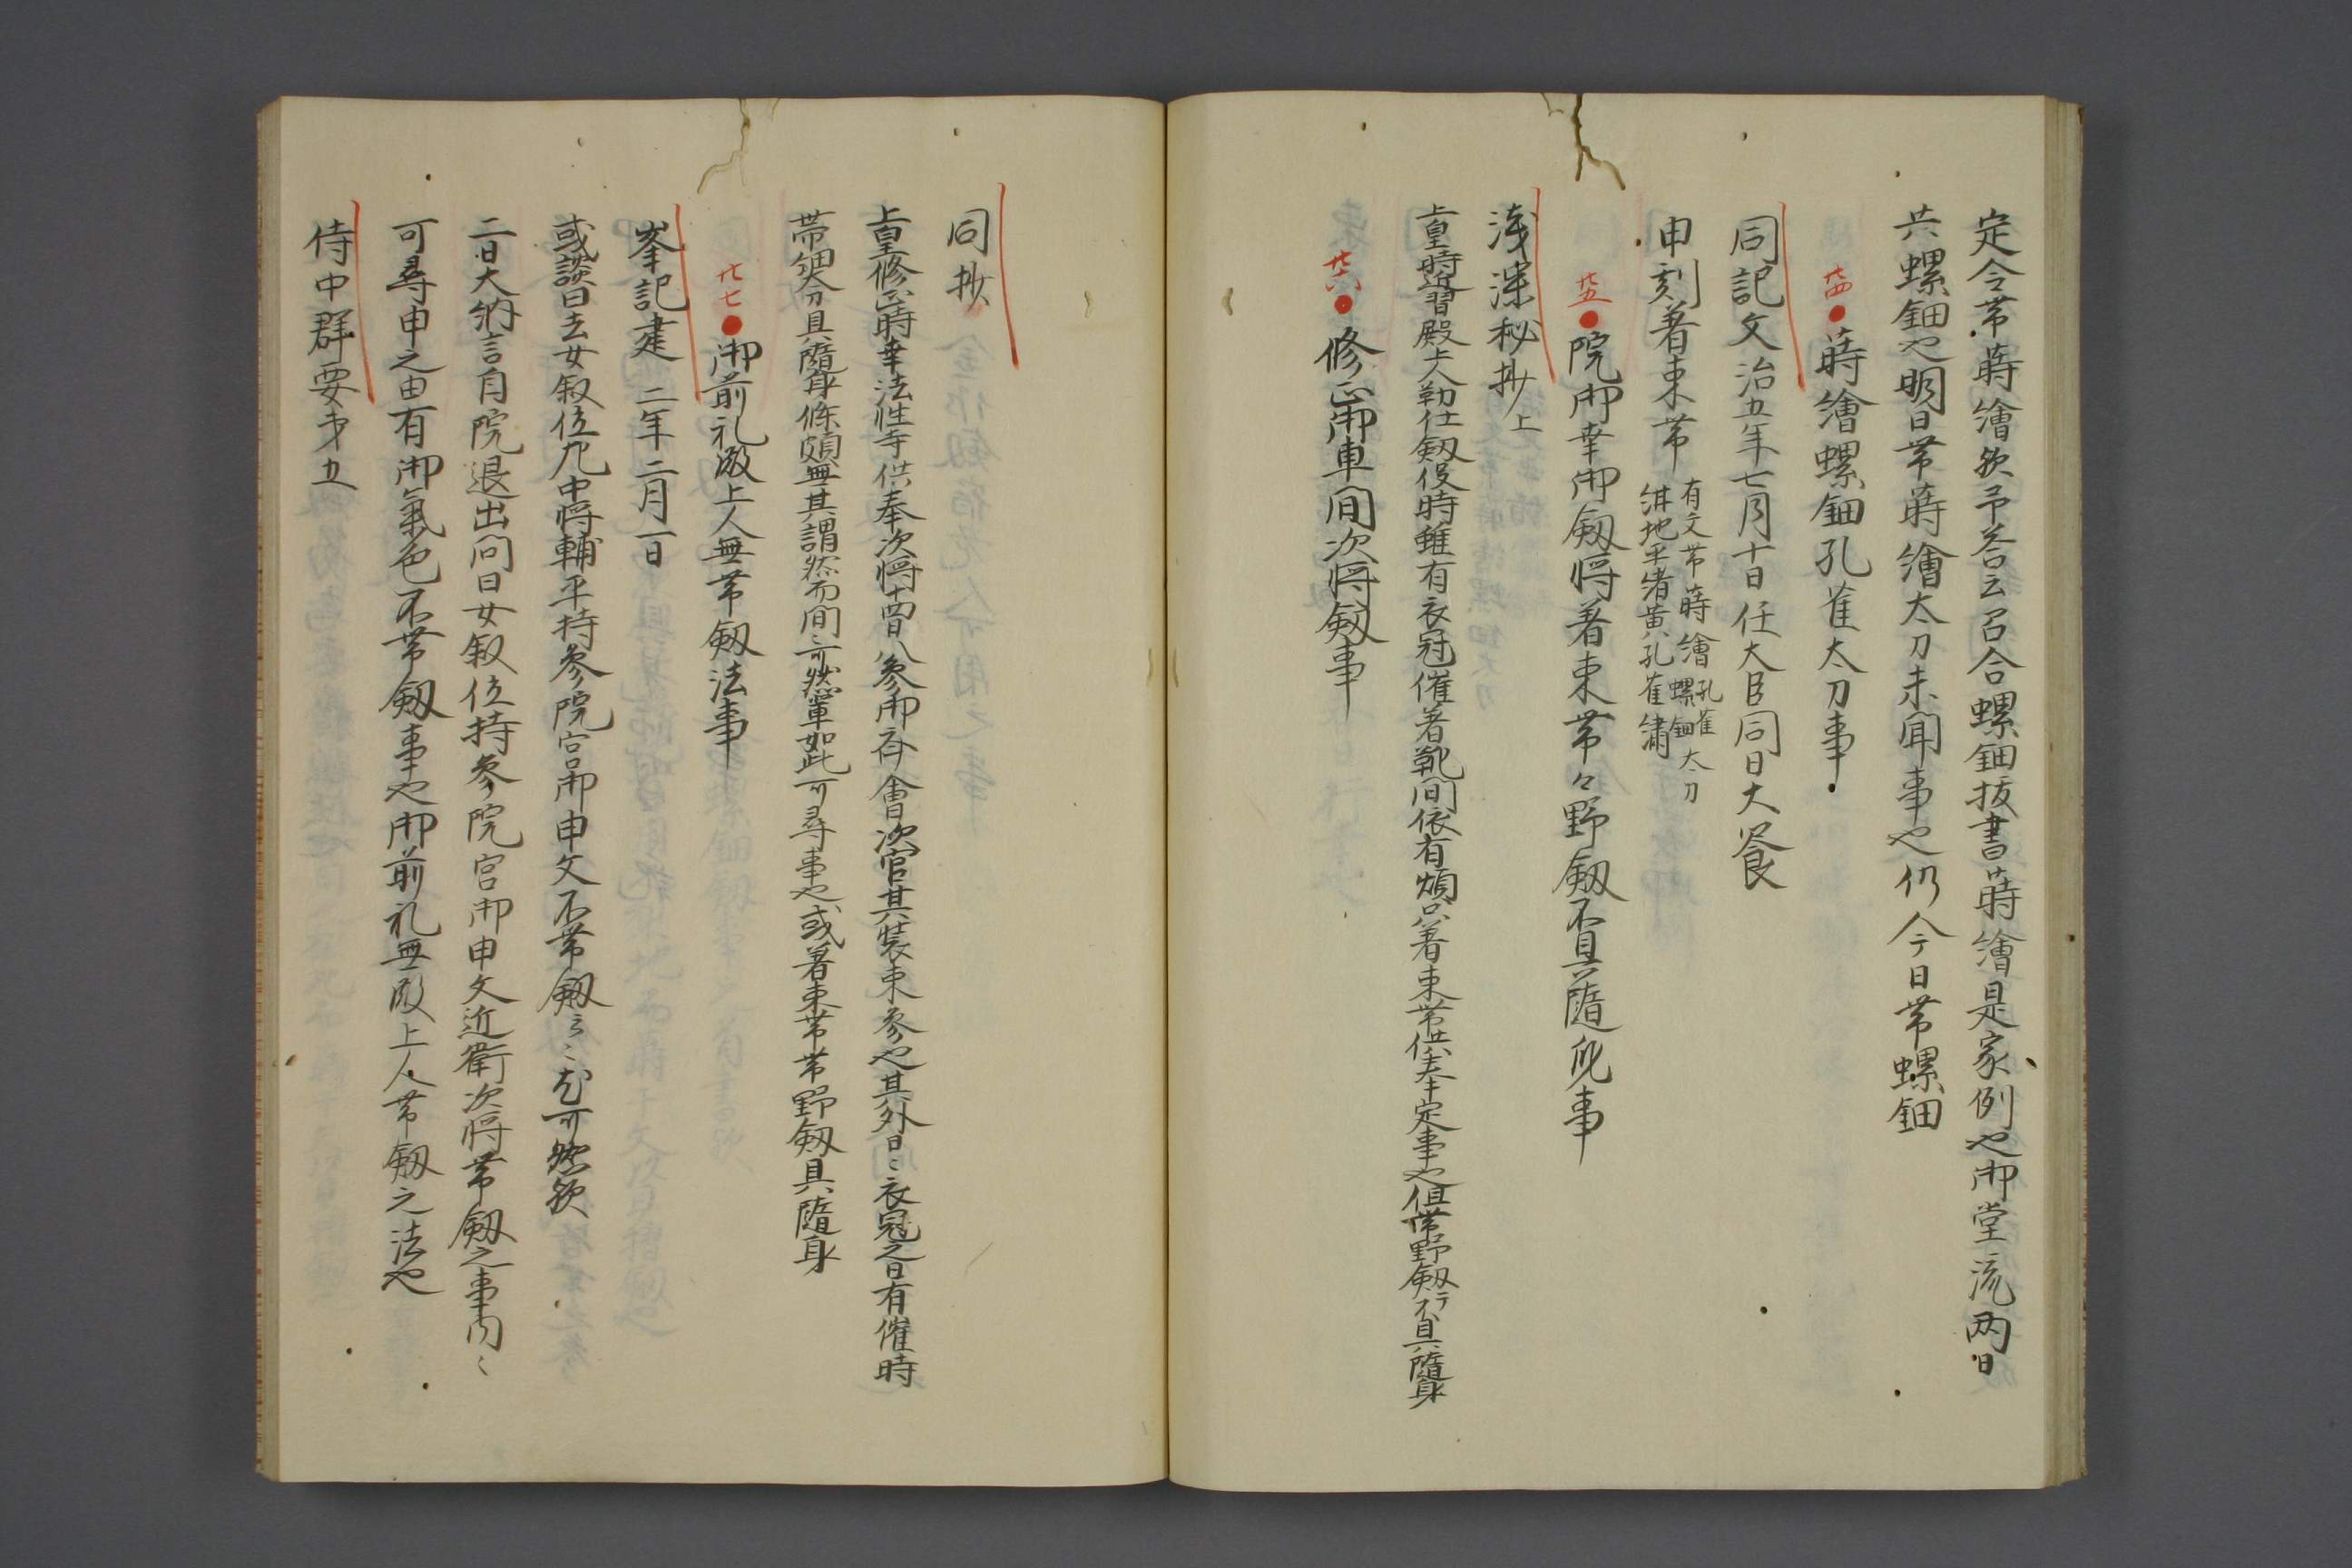 定令帯蒔繪欤予答云召合螺鈿抜書蒔繪是家例也御堂流両日
共螺鈿也明日帯蒔繪太刀未聞事也仍今日帯螺鈿
廿四●蒔繪螺鈿孔雀太刀事
同記文治五年七月十日任大臣同日大饗
申刻著束帯 有文帯蒔繪孔雀螺鈿太刀
紺地平緒黄孔雀繡
廿五●院御幸御劔将著束帯々野劔不具隨身事
浅深秘抄上
上皇時近習殿上人勤仕劔役時雖有衣冠催著靴間依有煩只著束帯供奉定事也但帯野劔テ不具隨身
廿六●修正御車間次将劔事
同抄
上皇修正時幸法性寺供奉次将十四日八参御斎會次官其装束参也其外日ミ衣冠之日有催時
帯細劔具隨身條頗無其謂然而間ミ可然輩如此可尋事也或著束帯帯野劔具隨身
廿七●御前礼殿上人無帯劔法事
峯記建 二年二月一日
或談曰去女叙位九中将輔平持参院宮御申文不帯劔云ミ尤可然欤
二日大納言自院退出問曰女叙位持参院宮御申文近衛次将帯劔之事内ミ
可尋申之由有御氣色不帯劔事也御前礼無殿上人帯劔之法也
侍中群要第五